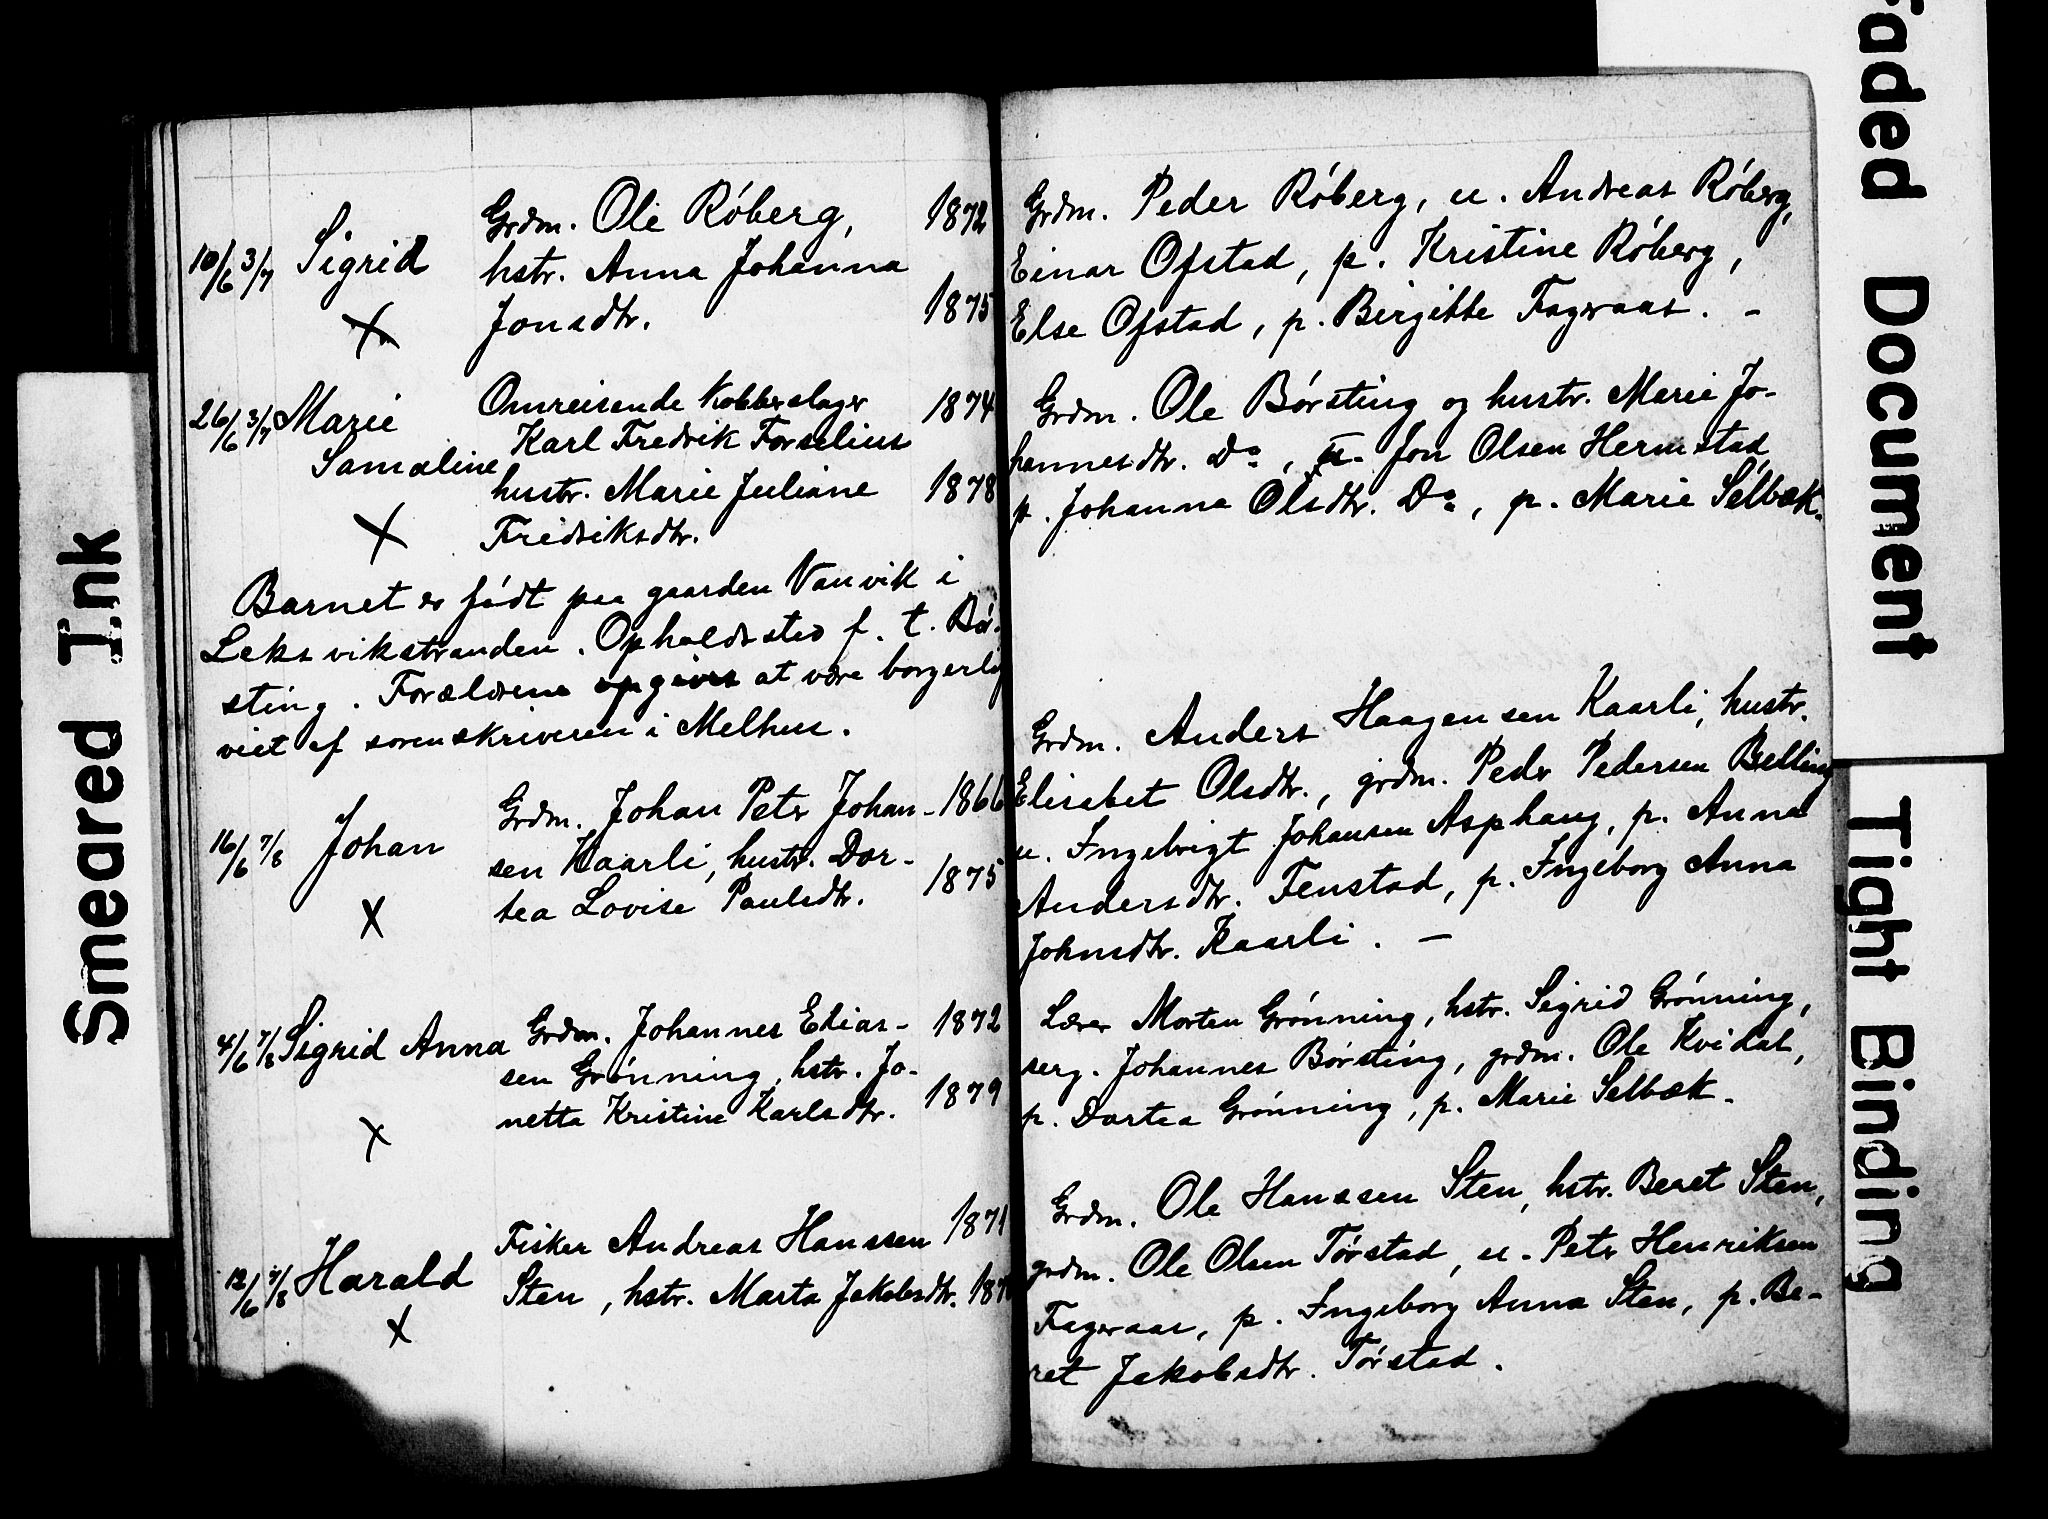 Grdm. Ole Róberg, 1872
10/6 3/7 Sigrid hstr. Anna Johanna
Jonsdtr. 1875
X
26/6 3/7 Marie Omreisende Kobberslager 1874
Samaline Karl Fredrik Forselius
hustr. Marie Juliane 1878
X Fredriksdtr.
Barnet er fódt paa gaarden Vanvik i
Leksvikstranden. Opholdssted f. t. Bór-
sting. Forældrene opgives at være borgerlig
viet af sorenskriveren i Melhus.
Grdm. Johan Peter Johan- 1866
16/6 7/8 Johan sen Kaarli, hustr. Dor-
tea Lovise Paulsdtr. 1875
X
4/6 7/8 Sigrid Anna Grdm. Johannes Elias- 1872
sen Grónning, hstr. Jo-
netta Kristine Karlsdtr. 1879
X
Fisker Andreas Hanssen 1871
12/6 7/8 Harald Sten, hstr. Marta Jakobsdtr.
X
Grdm. Peder Róberg, u. Andreas Róberg,
Einar Ofstad, p. Kristine Róberg,
Else Ofstad, p. Birgitte Fageraas. -
Grdm. Ole Bórsting og hustr. Marie Jo-
hannesdtr. Do, u. Jon Olsen Hermstad
p. Johanna Olsdtr. Do, p. Marie Selbæk.
Grdm. Anders Haagensen Kaarli, hustr.
Elisabet Olsdtr., grdm. Peder Pedersen Belling
u. Ingebrigt Johansen Asphaug, p. Anna
Andersdtr. Fenstad, p. Ingeborg Anna
Johnsdtr. Kaarli. -
Lærer Morten Grónning, hstr. Sigrid Grónning,
serg. Johannes Bórsting, grdm. Ole Kvidal,
p. Dortea Grónning, p. Marie Selbæk.
Grdm. Ole Hanssen Sten, hstr. Beret Sten,
grdm. Ole Olsen Tórstad, u. Peter Henriksen
Fageraas, p. Ingeborg Anna Sten, p. Be-
ret Jakobsdtr. Tórstad.
Smeared Ink
Faded Document
Tight Binding